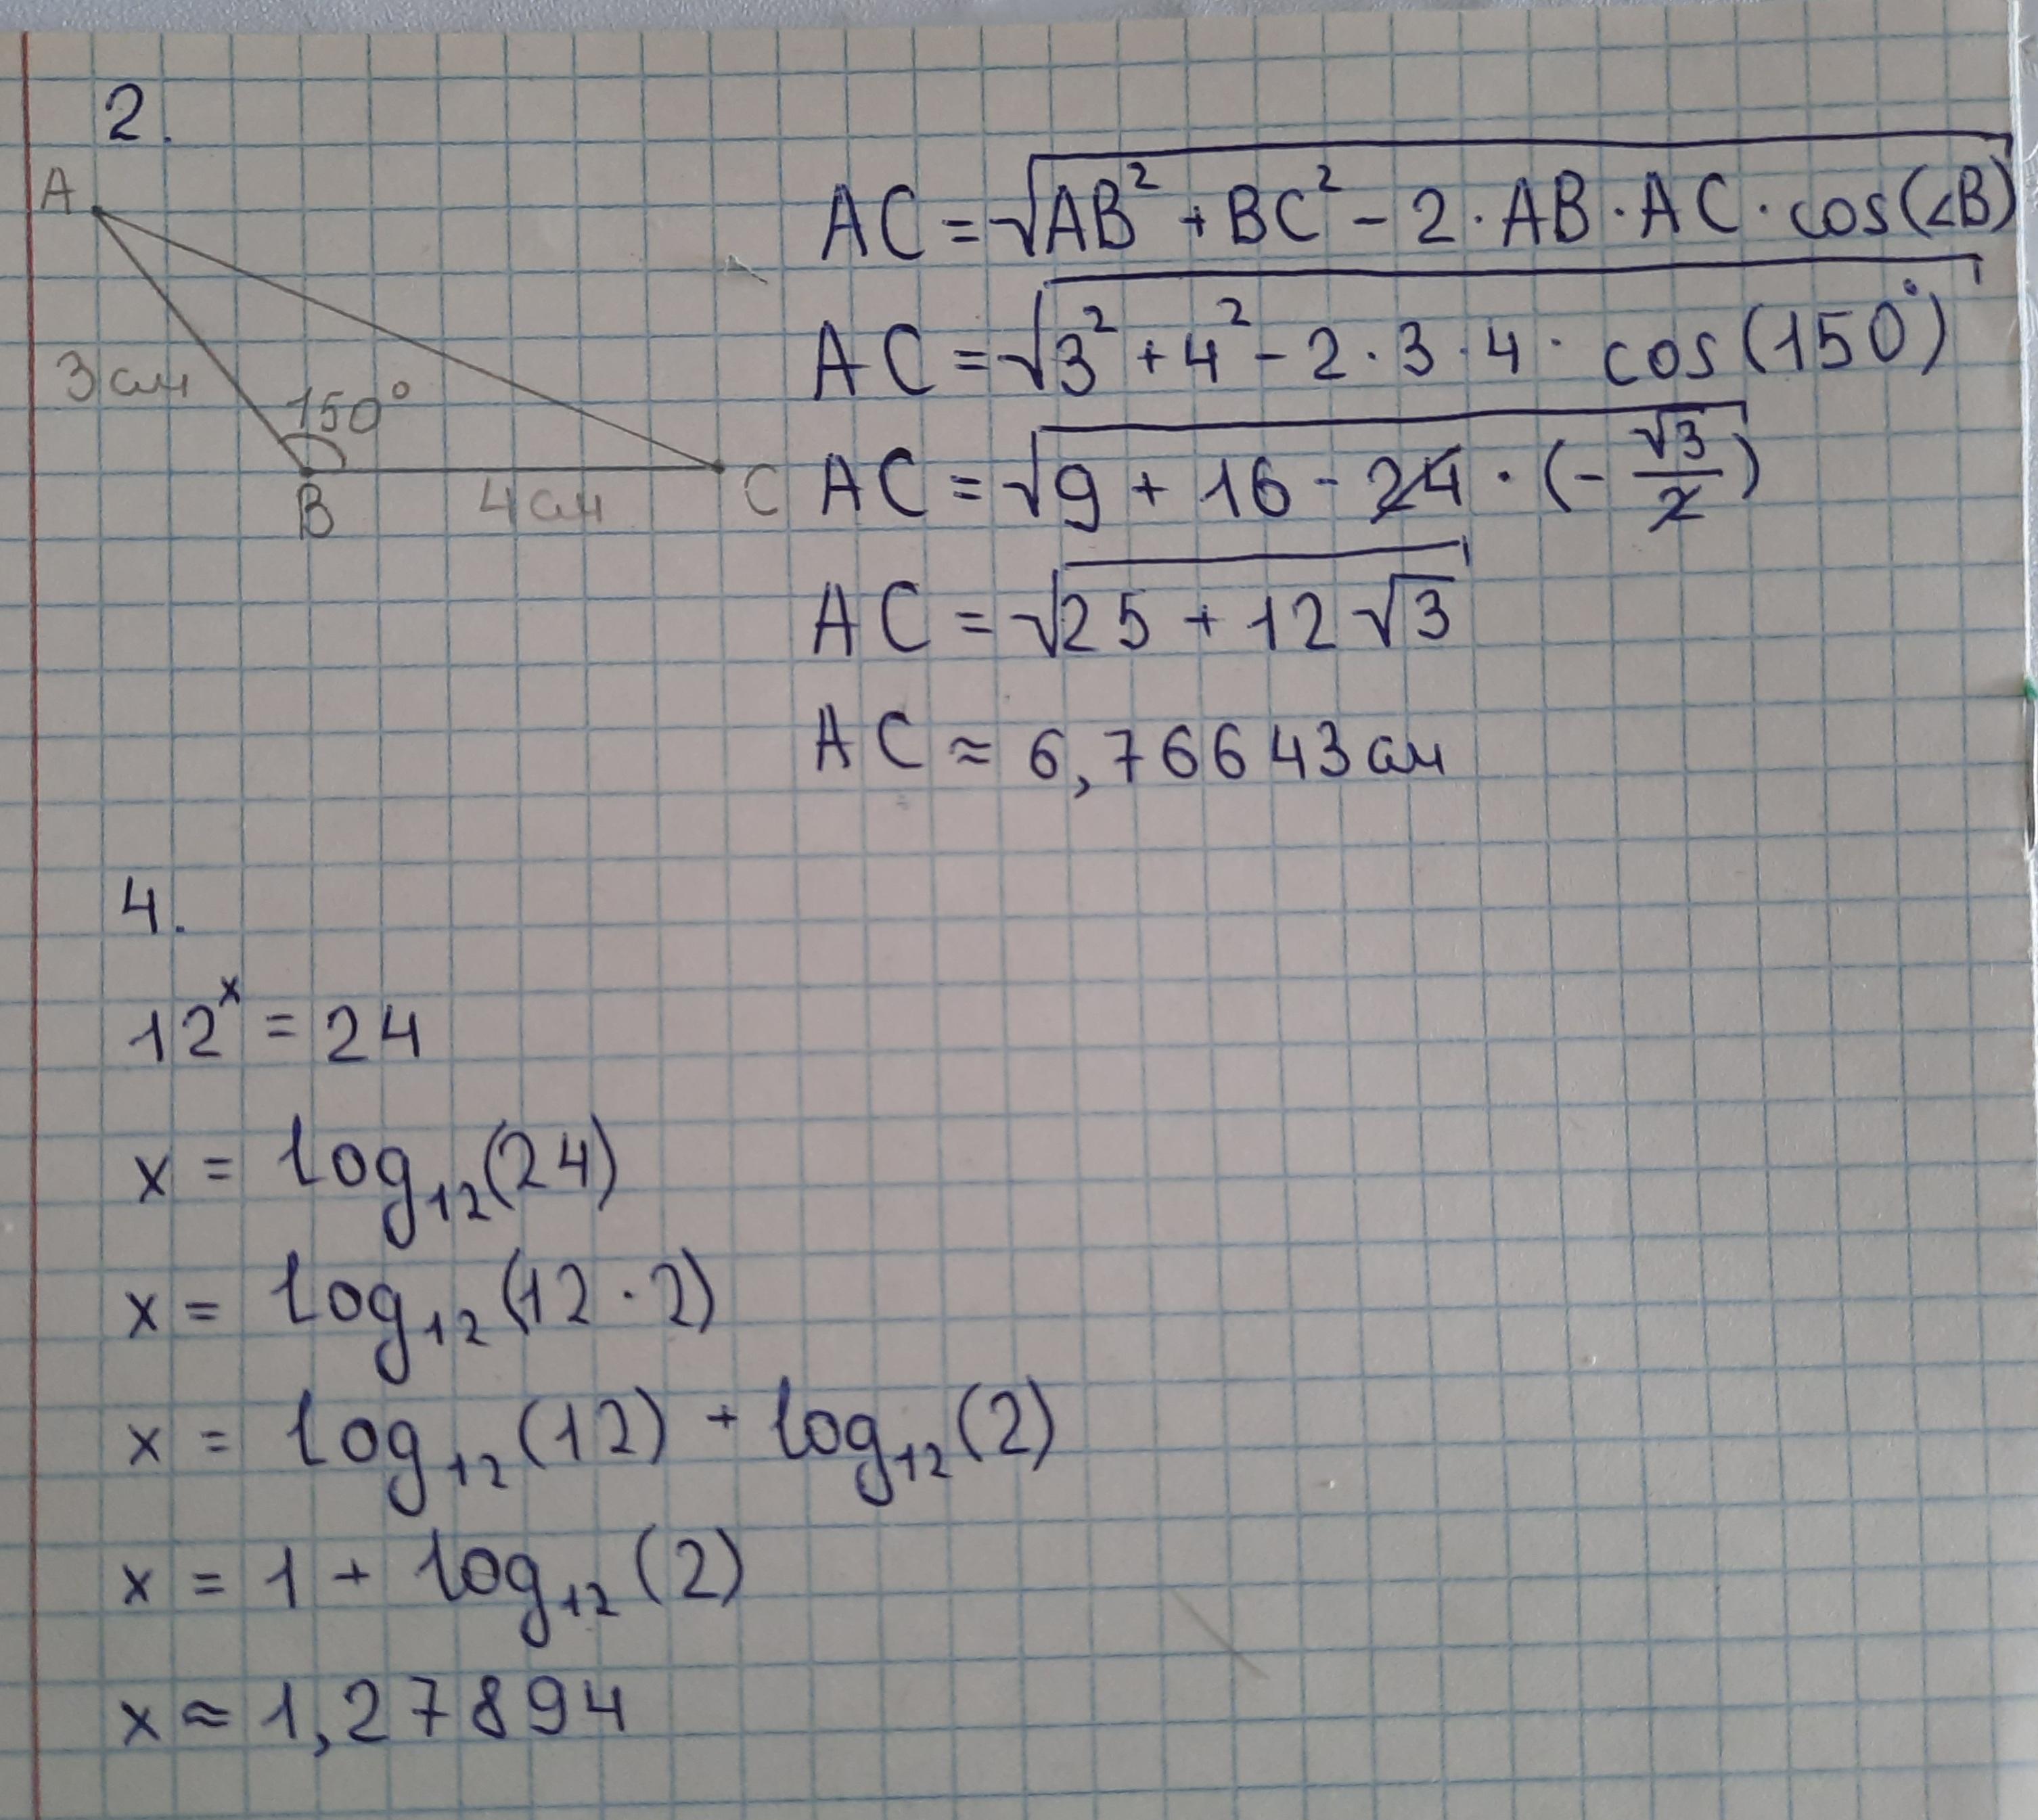 2.
A
3 см
150°
B
4 см
C
AC = √(AB² + BC² - 2 · AB · AC · cos(∠B))
AC = √(3² + 4² - 2 · 3 · 4 · cos(150°))
AC = √(9 + 16 - 24 · (-√3/2))
AC = √(25 + 12√3)
AC ≈ 6,76643 см
4.
12ˣ = 24
x = log₁₂(24)
x = log₁₂(12 · 2)
x = log₁₂(12) + log₁₂(2)
x = 1 + log₁₂(2)
x ≈ 1,27894